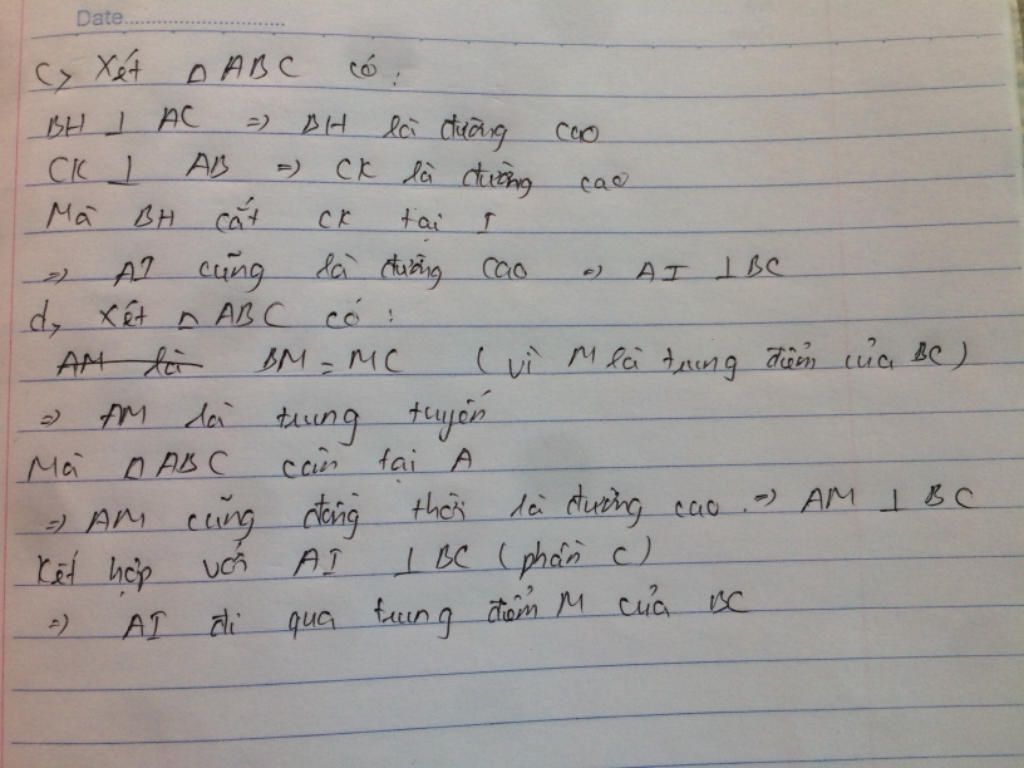 Date
c, Xét △ABC có:
BH ⊥ AC => BH là đường cao
CK ⊥ AB => CK là đường cao
Mà BH cắt CK tại I
=> AI cũng là đường cao => AI ⊥ BC
d, Xét △ABC có:
AM là BM = MC (vì M là trung điểm của BC)
=> AM là trung tuyến
Mà △ABC cân tại A
=> AM cũng đồng thời là đường cao. => AM ⊥ BC
Kết hợp với AI ⊥ BC (phần c)
=> AI đi qua trung điểm M của BC